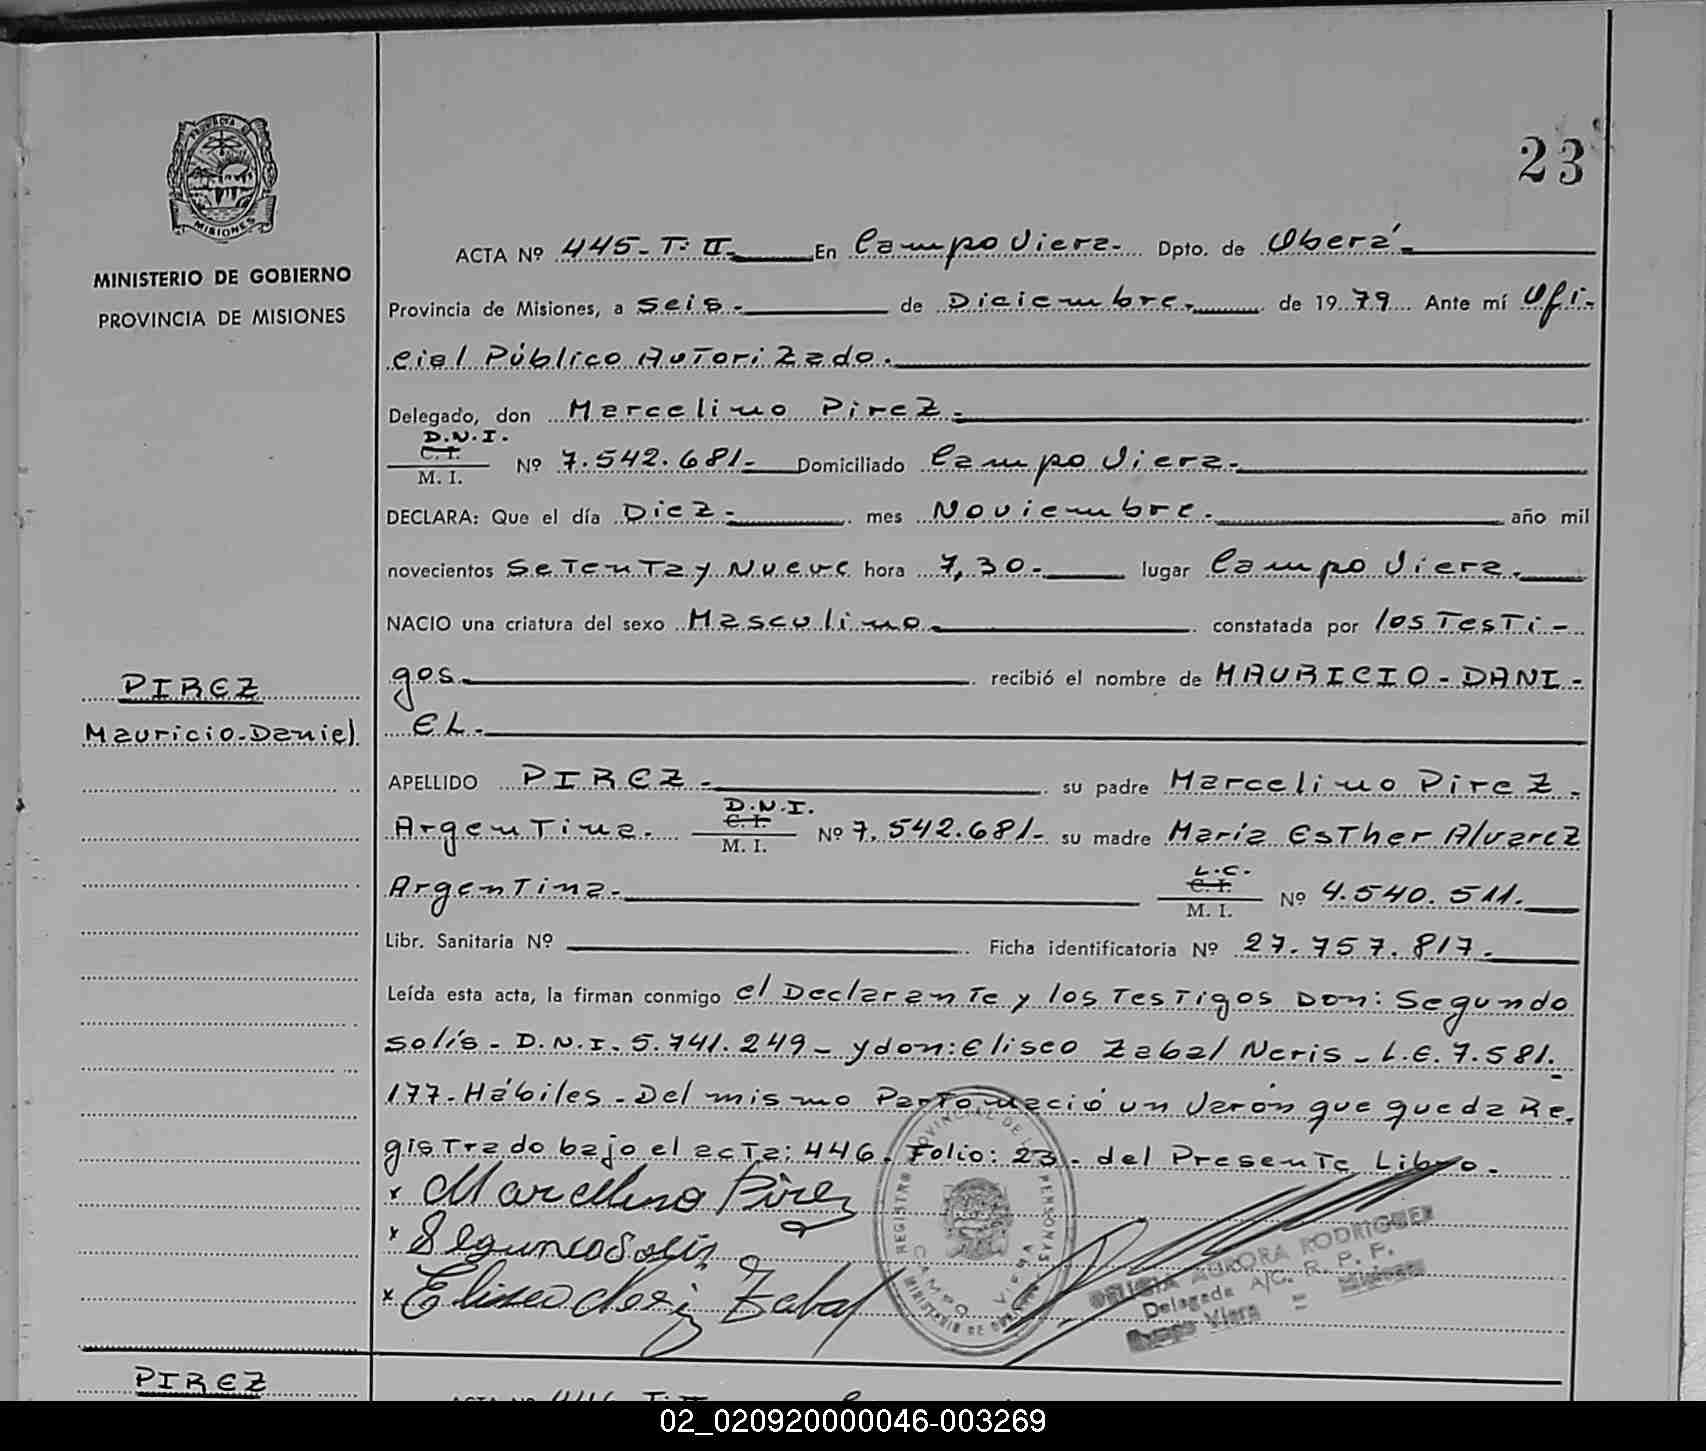 PROVINCIA DE
MISIONES
MINISTERIO DE GOBIERNO
PROVINCIA DE MISIONES
23
ACTA Nº 445-T. II.- En Campo Viera.- Dpto. de Oberá.-
Provincia de Misiones, a Seis.- de Diciembre.- de 1979 Ante mí Ofi-
cial Público Autorizado.-
Delegado, don Marcelino Pirez.-
D.N.I.
C. I.
M. I.
Nº 7.542.681.- Domiciliado Campo Viera.-
DECLARA: Que el día Diez.- mes Noviembre.- año mil
novecientos Setenta y Nueve hora 7,30.- lugar Campo Viera.-
NACIO una criatura del sexo Masculino.- constatada por los Testi-
gos.- recibió el nombre de MAURICIO-DANI-
EL.-
PIREZ
Mauricio-Daniel
APELLIDO PIREZ.- su padre Marcelino Pirez.-
D.N.I.
C. I.
M. I.
Argentina. Nº 7.542.681.- su madre María Esther Alvarez
L.C.
C. I.
M. I.
Argentina.- Nº 4.540.511.-
Libr. Sanitaria Nº Ficha identificatoria Nº 27.757.817.-
Leída esta acta, la firman conmigo el Declarante y los Testigos Don: Segundo
Solís- D.N.I. 5.741.249- y don: Eliseo Zabal Neris- L.E. 7.581.
177.- Hábiles.- Del mismo Parto nació un Varón que queda Re-
gistrado bajo el acta: 446. Folio: 23.- del Presente Libro.-
x Marcelino Pirez
x Segundo Solis
x Eliseo Neris Zabal
REGISTRO PROVINCIAL DE LAS PERSONAS
CAMPO VIERA
MINISTERIO DE GOBIERNO
DELICIA AURORA RODRIGUEZ
Delegada A/C. R. P. P.
Campo Viera = Misiones
PIREZ
ACTA Nº 446 T. II
02_020920000046-003269